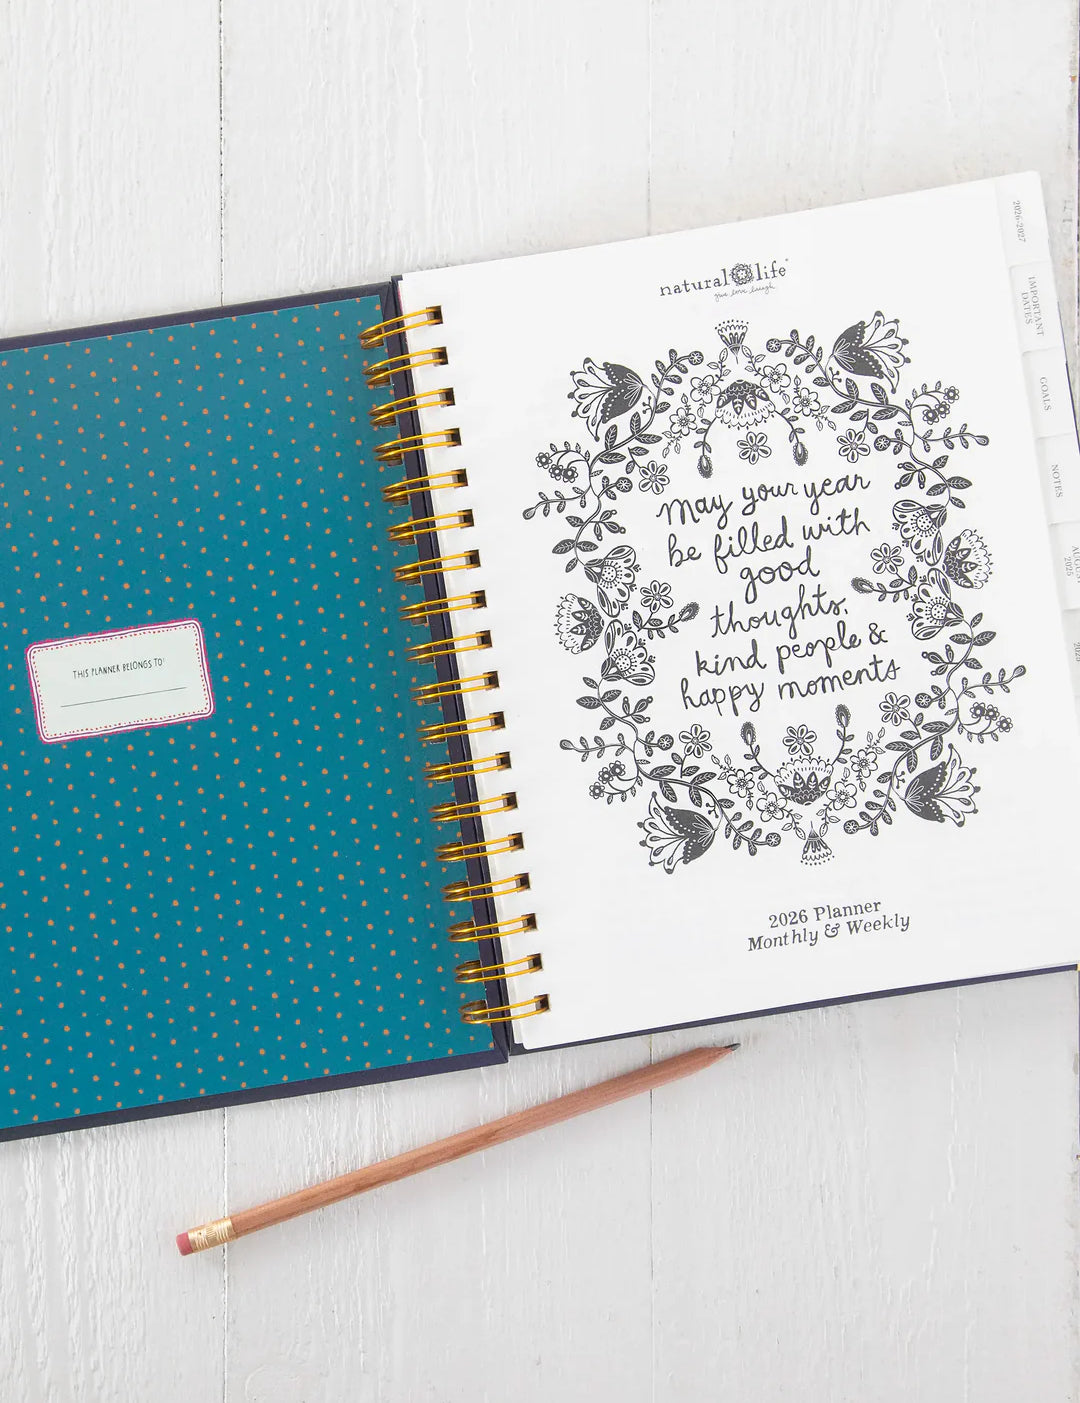 THIS PLANNER BELONGS TO:
natural life
give love laugh
May your year
be filled with
good
thoughts,
kind people &
happy moments
2026 Planner
Monthly & Weekly
2026-2027
IMPORTANT
DATES
GOALS
NOTES
AUGUST
2025
2025